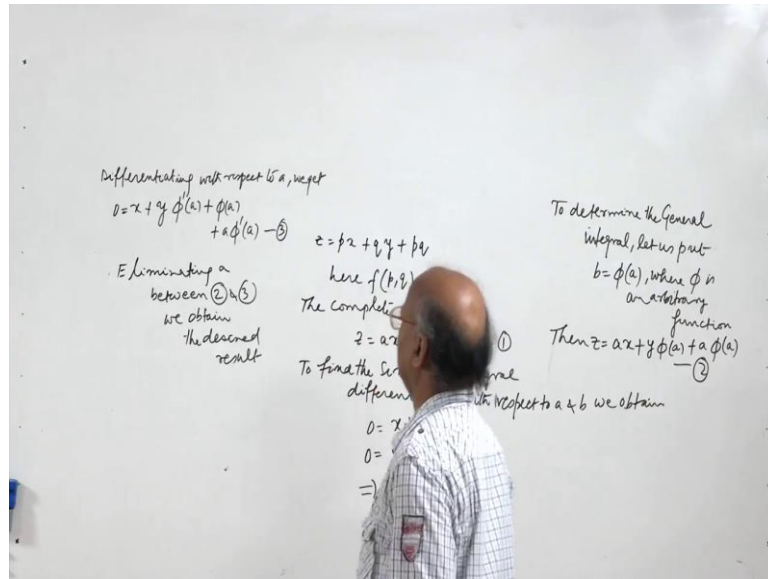 Differentiating with respect to a, we get
0 = x + y φ'(a) + φ(a)
+ a φ'(a) — ③
Eliminating a
between ② & ③
we obtain
the desired
result
z = px + qy + pq
here f(p,q)
The complete
z = ax ①
To find the
differen with respect to a & b we obtain
0 = x
0 =
⇒
To determine the General
integral, let us put
b = φ(a), where φ is
an arbitrary
function
Then z = ax + y φ(a) + a φ(a)
— ②